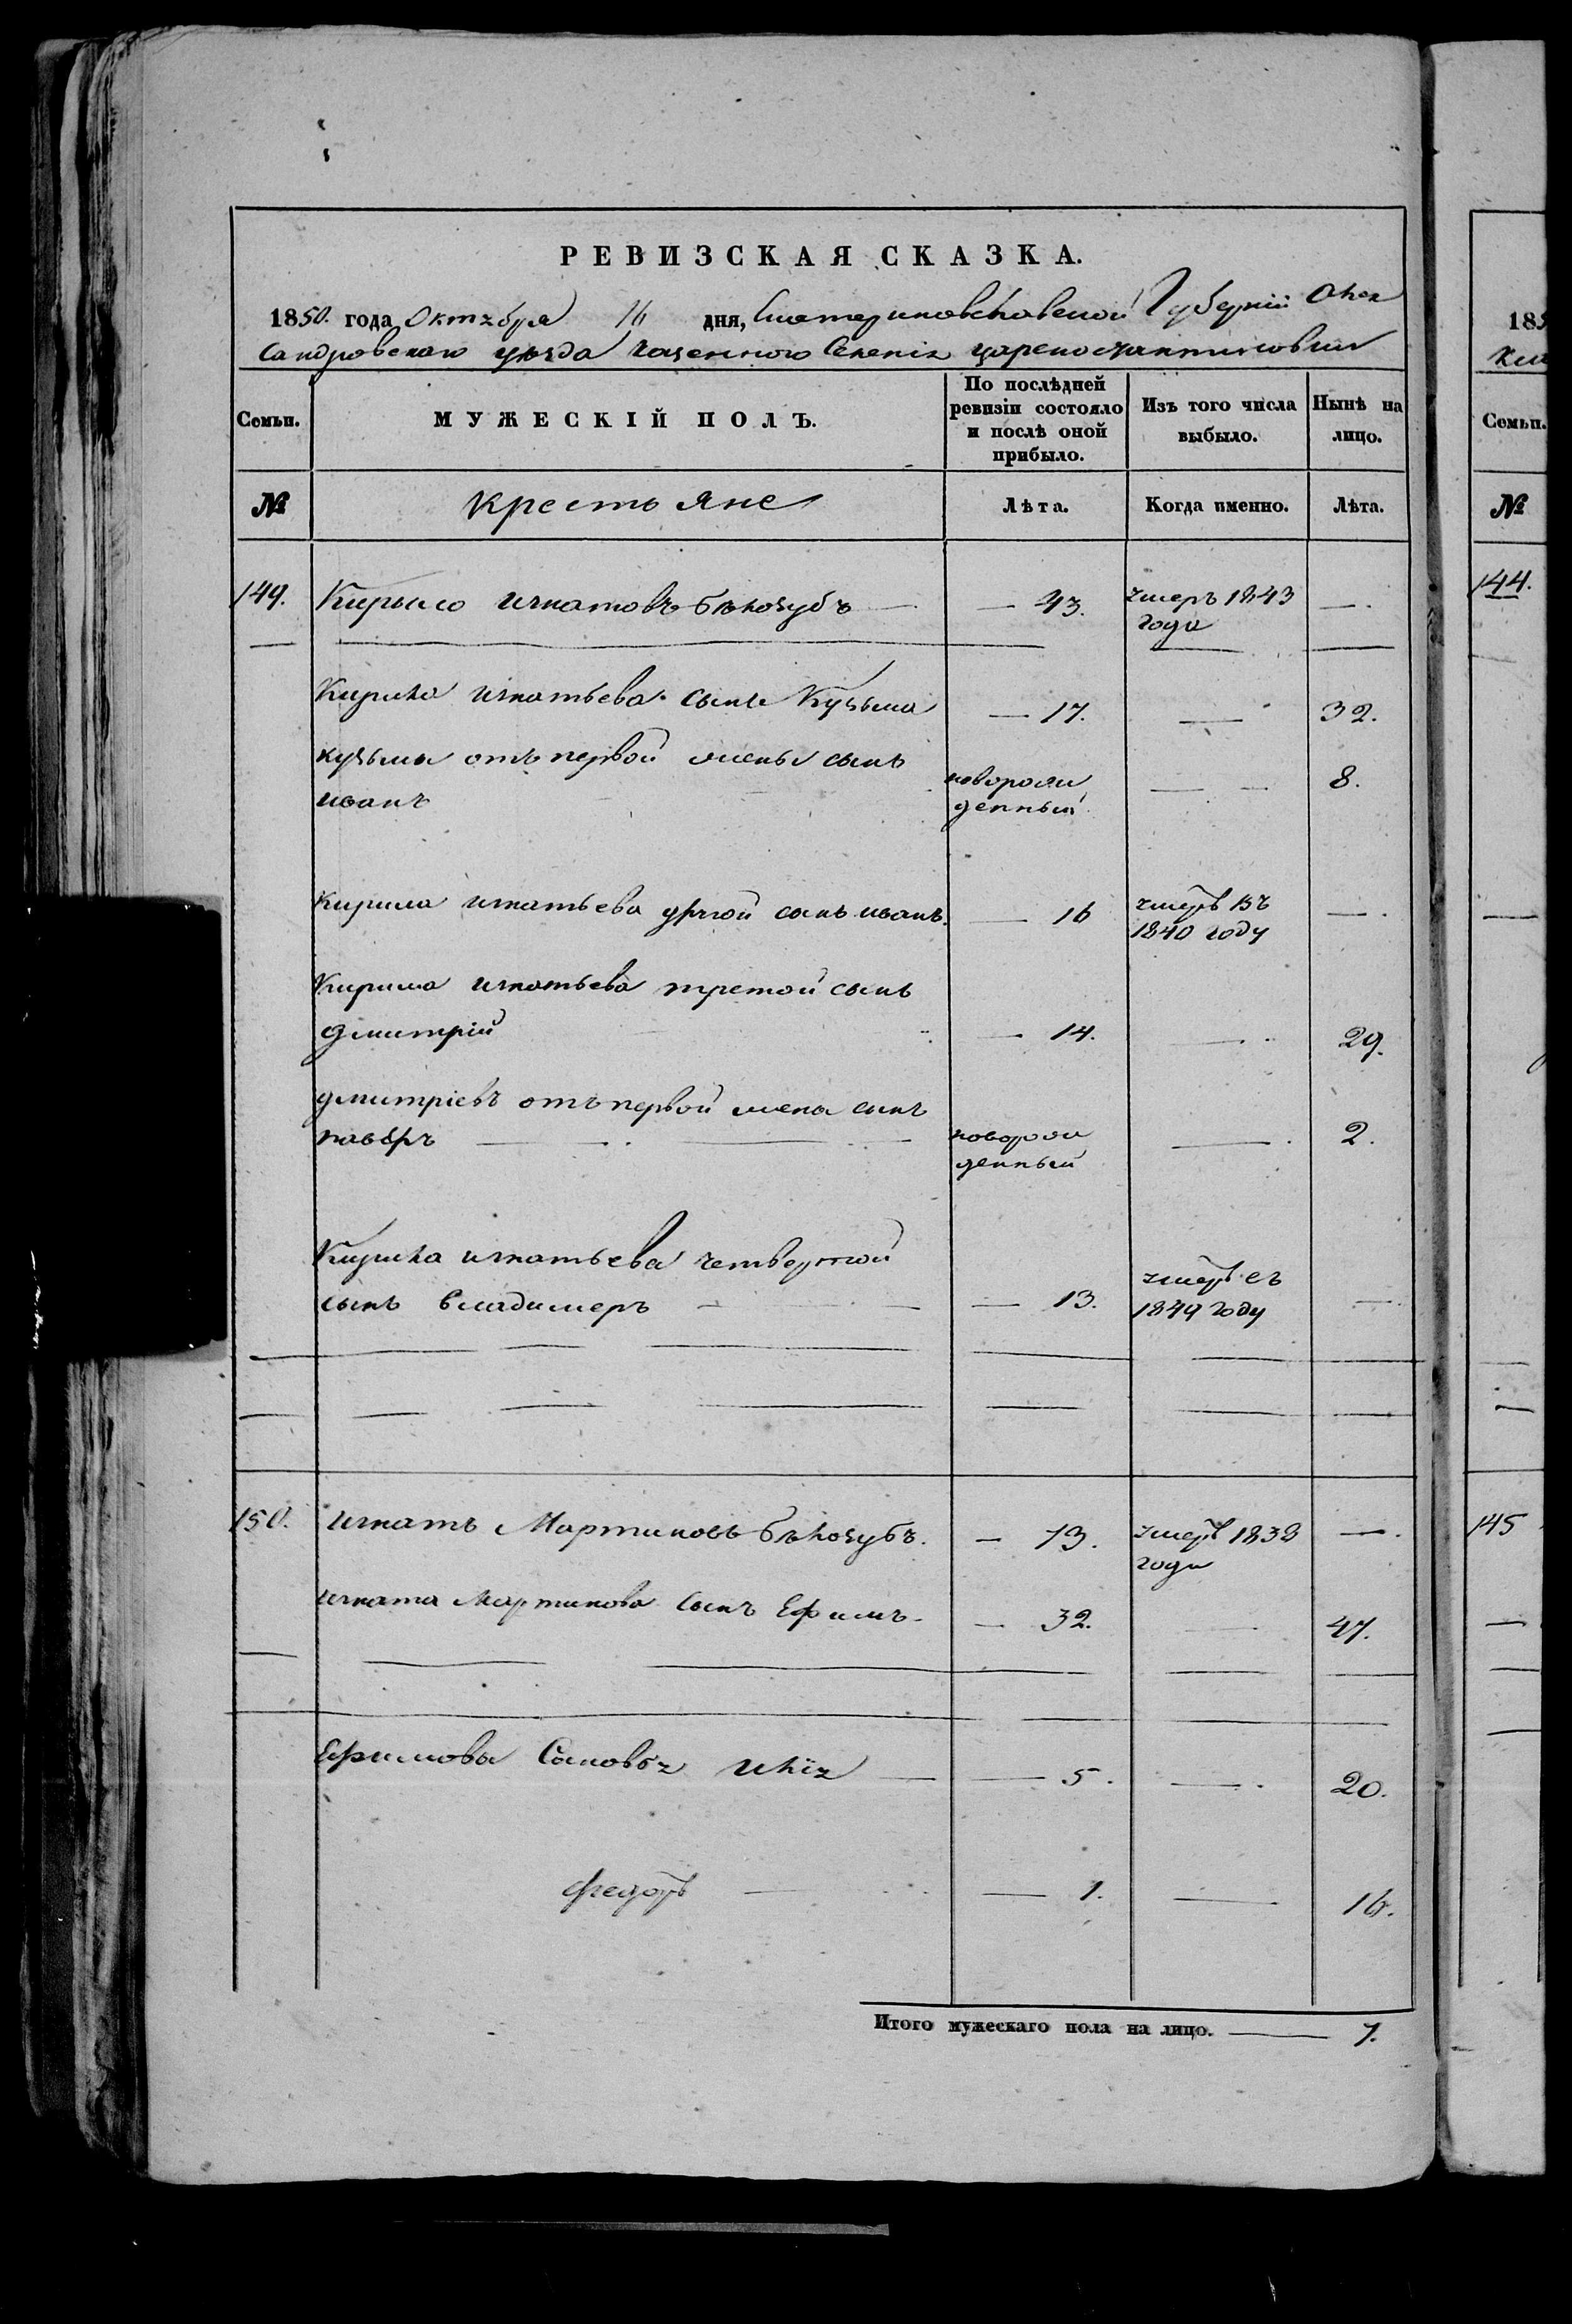 РЕВИЗСКАЯ СКАЗКА.
1850. года Октября 16 дня, Екатеринославской Губерніи Алек
сандровскаго уѣзда казенного Селенія цареконстантиновки
Семьи.
МУЖЕСКІЙ ПОЛЪ.
По послѣдней ревизіи состояло и послѣ оной прибыло.
Изъ того числа выбыло.
Нынѣ на лицо.
№
крестьяне
Лѣта.
Когда именно.
Лѣта.
149. Кирило игнатовъ бѣлозубъ — 43. умеръ 1843 года —.
Кирила игнатьева сынъ Кузьма — 17. — 32.
кузьмы отъ первой жены сынъ
иванъ новорож денный — 8.
Кирила игнатьева другой сынъ иванъ. — 16 умеръ въ 1840 году —.
Кирила игнатьева третой сынъ
дмитрій — 14. — 29.
дмитріевъ отъ первой жены сынъ
новорож денный — 2.
Кирила игнатьева четвертой
сынъ владимеръ — 13. умеръ въ 1849 году —.
150. игнатъ Мартиновъ бѣлозубъ. — 73. умеръ 1838 года —.
игната Мартинова сынъ Ефимъ — 32. — 47.
Ефимовы Сыновья Илія — 5. — 20.
федоръ — 1. — 16.
Итого мужескаго пола на лицо. — 7.
185
Семьи.
№
144.
145